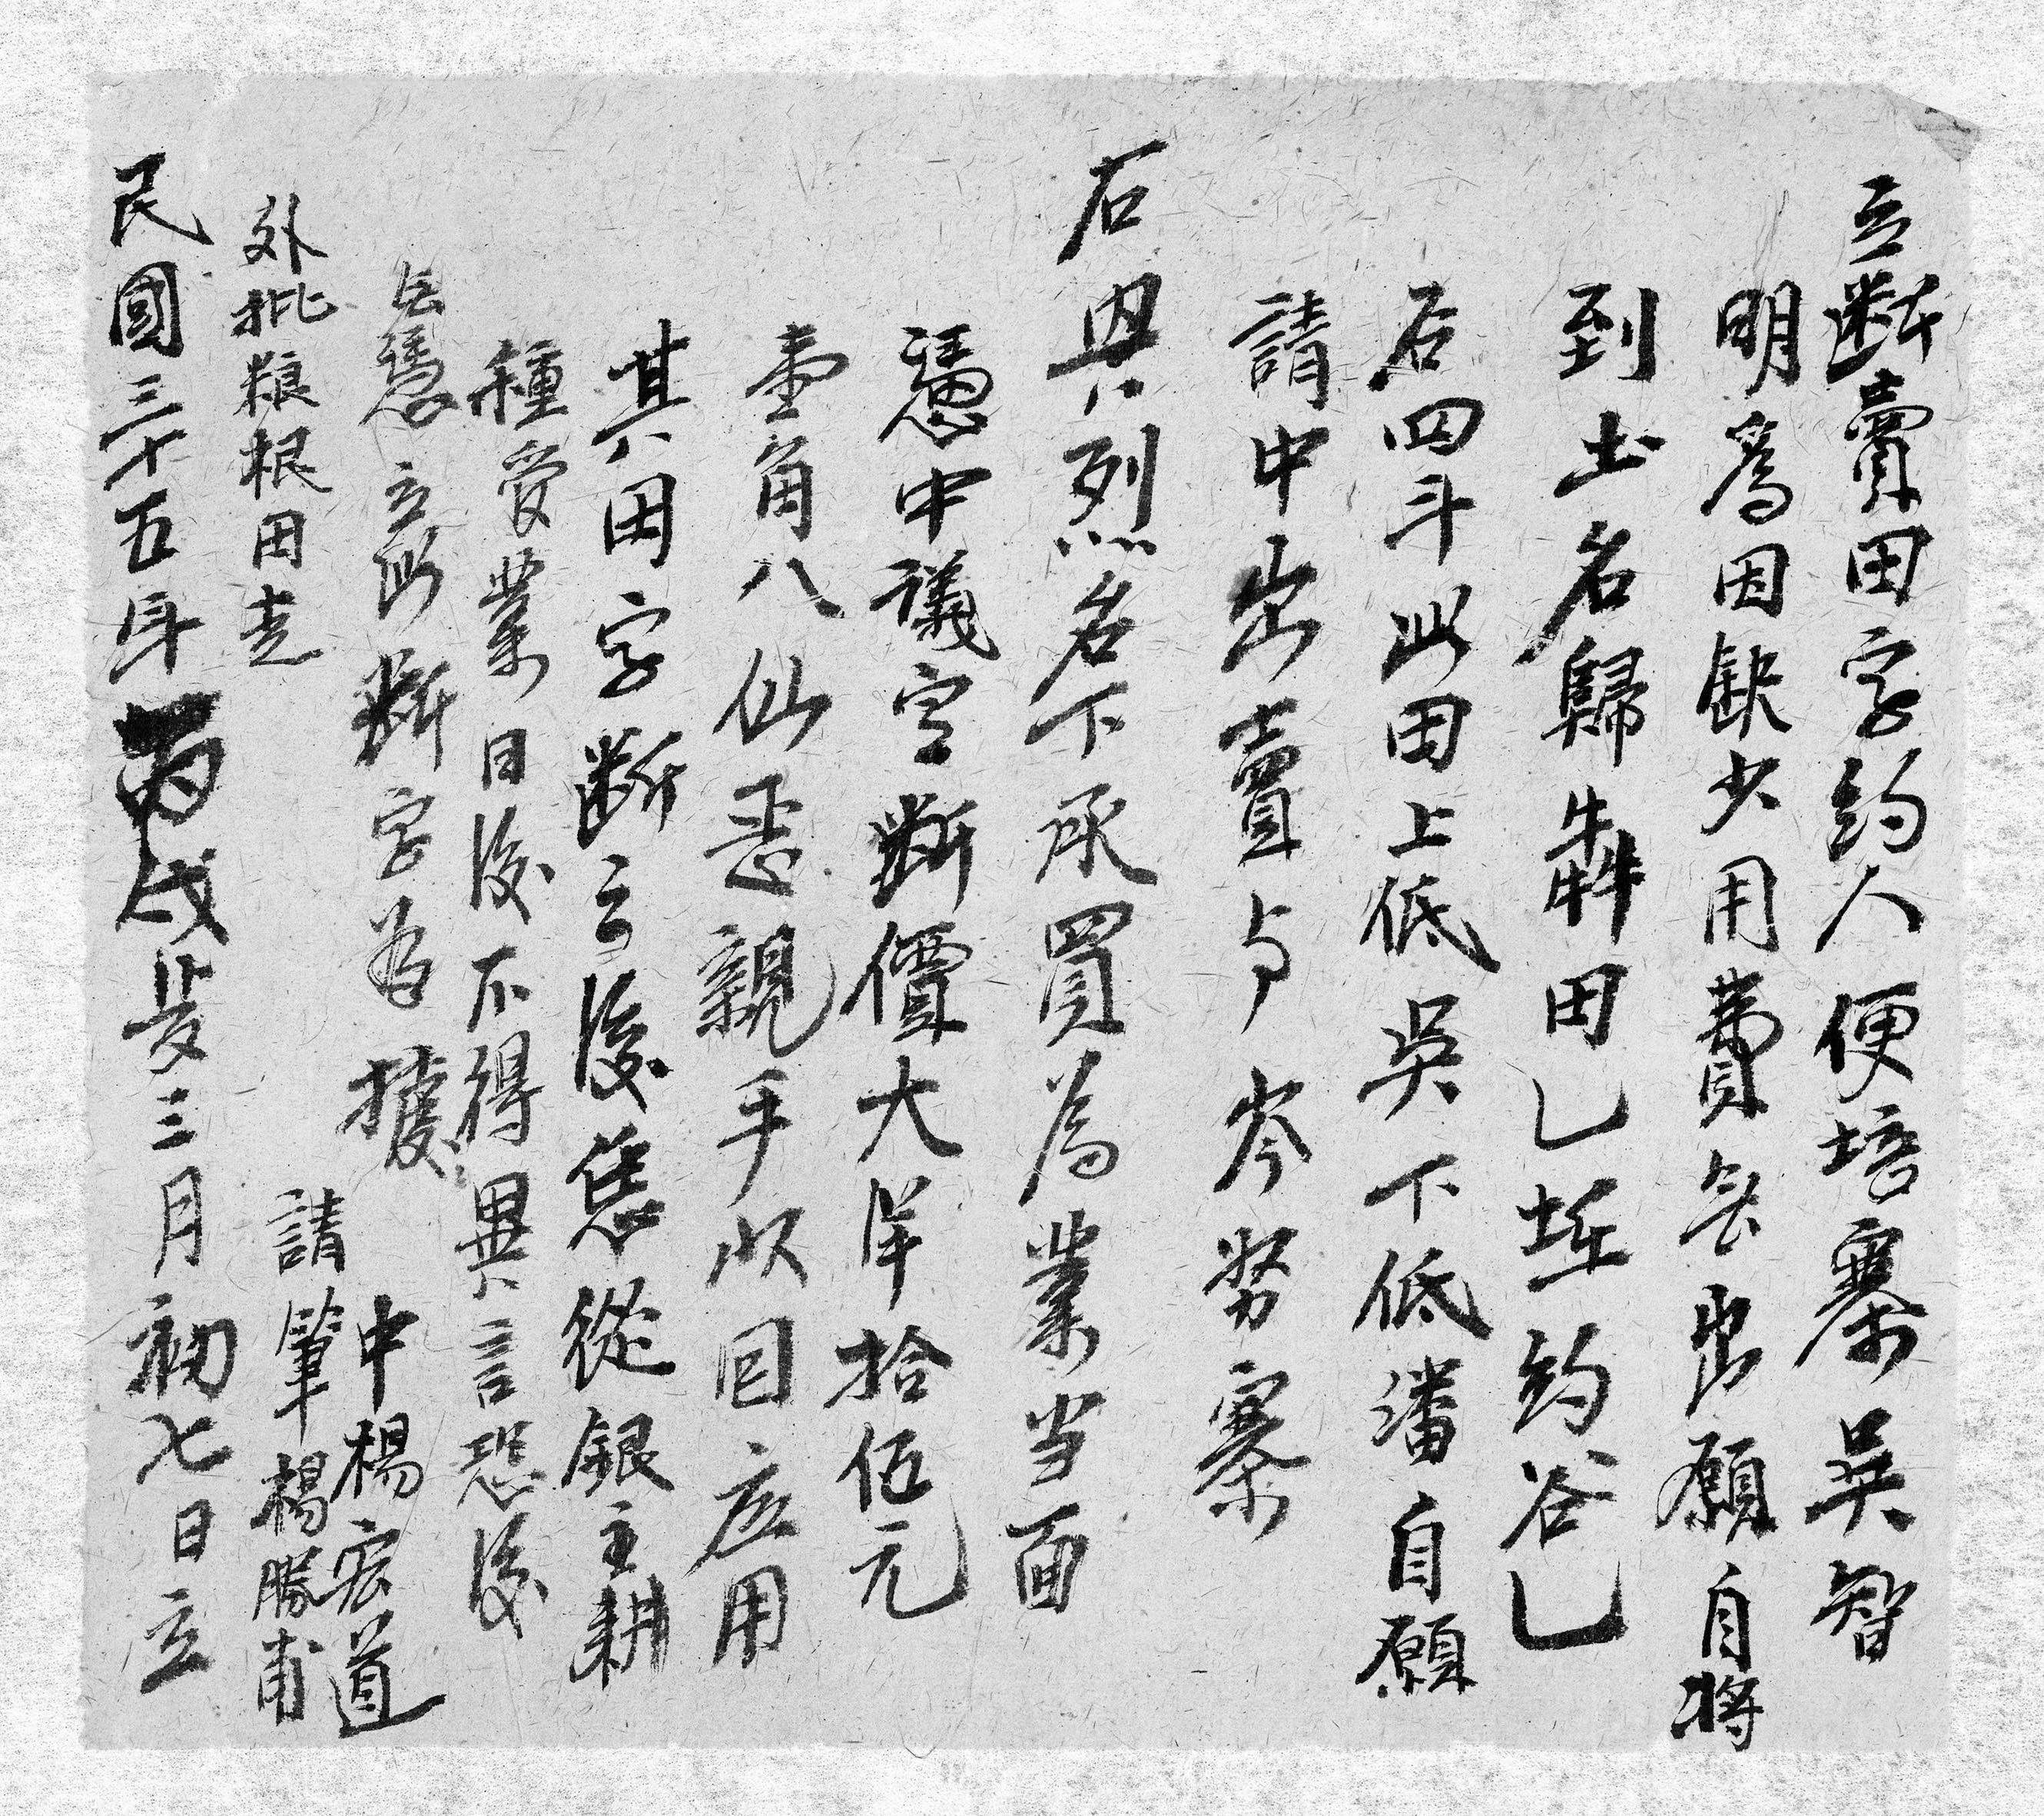 立斷賣田字約人便培寨吳智
明爲因缺少用費無出願自將
到土名歸犇田乚坵約谷乚
石四斗此田上低吳下低潘自願
請中出賣与岑努寨
石興烈名下承買為業当面
憑中議定斷價大洋拾伍元
壹角八仙悉親手收回应用
其田字斷之後凭從銀主耕
種受業日後不得異言恐後
無憑立此斷字為據
中楊宏道
外批粮根田走
請筆楊勝甫
民國三十五年丙戌歲三月初七日立